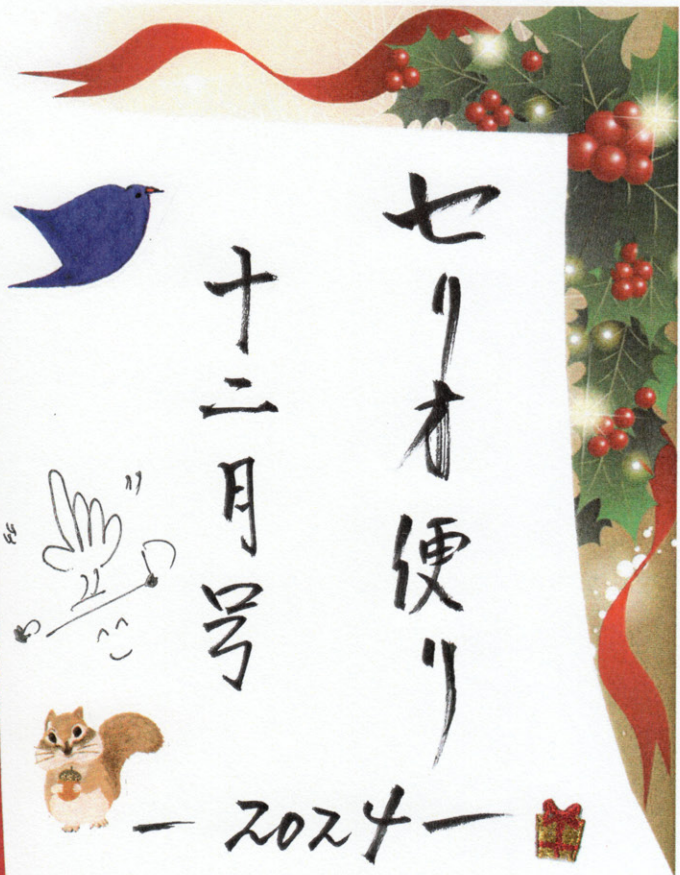 セリオ便り
十二月号
ー2024ー